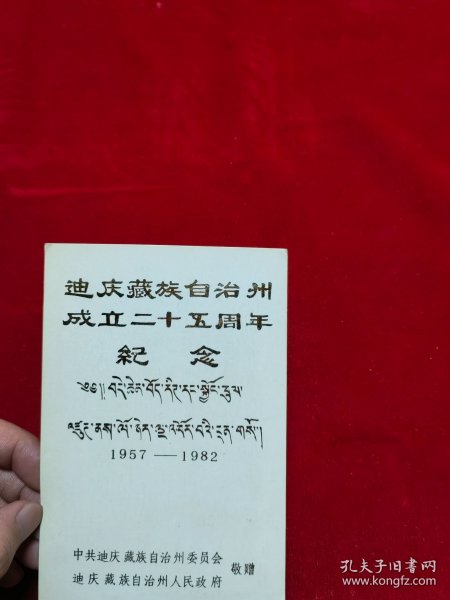 迪庆藏族自治州
成立二十五周年
紀 念
༄༅།། བདེ་ཆེན་བོད་རིགས་རང་སྐྱོང་ཁུལ་
འཛུགས་ནས་ལོ་ཉེར་ལྔ་འཁོར་བའི་དྲན་གསོ།
1957 — 1982
中共迪庆藏族自治州委员会
迪庆藏族自治州人民政府
敬赠
孔夫子旧书网
www.kongfz.com